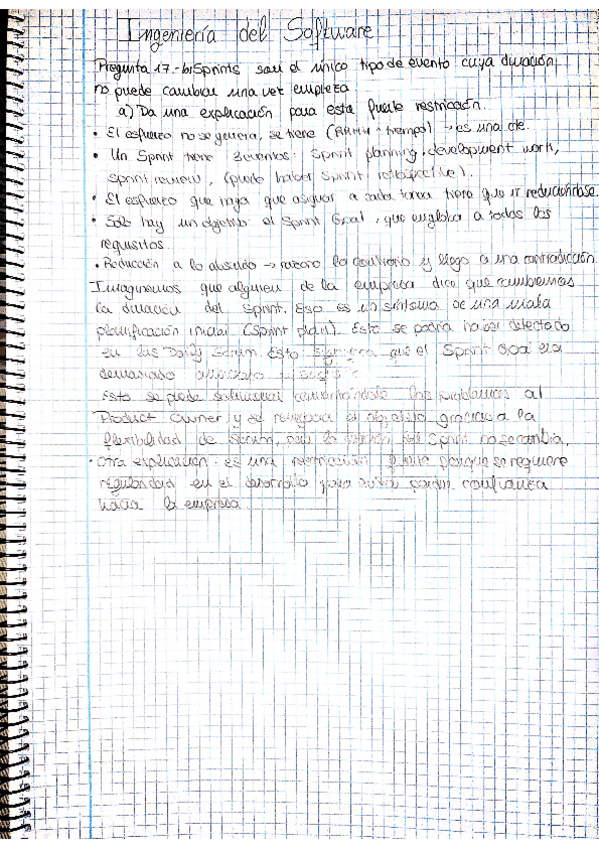 Ingeniería del Software
Pregunta 17.- Sprints son el único tipo de evento cuya duración
no puede cambiar una vez empieza
a) Da una explicación para esta fuerte restricción.
• El esfuerzo no se genera, se tiene (RRHH + tiempo) → es una de
• Un Sprint tiene 3 eventos: Sprint planning, development work,
sprint review, (puede haber sprint retrospective).
• El esfuerzo que haya que asignar a cada tarea tiene que ir reduciéndose.
• Solo hay un objetivo el Sprint Goal, que engloba a todos los
requisitos.
• Reducción a lo absurdo → razono lo contrario y llego a una contradicción.
Imaginemos que alguien de la empresa dice que cambiemos
la duración del sprint. Eso es un síntoma de una mala
planificación inicial (Sprint plan). Esto se podría haber detectado
en las Daily Scrum. Esto que el Sprint Goal era
demasiado
Esto se puede solucionar los problemas al
Product Owner y se el objetivo gracias a la
flexibilidad de Scrum, pero la del Sprint no se cambia.
• Otra explicación es una restricción fuerte porque se requiere
regularidad en el desarrollo para confianza
hacia la empresa